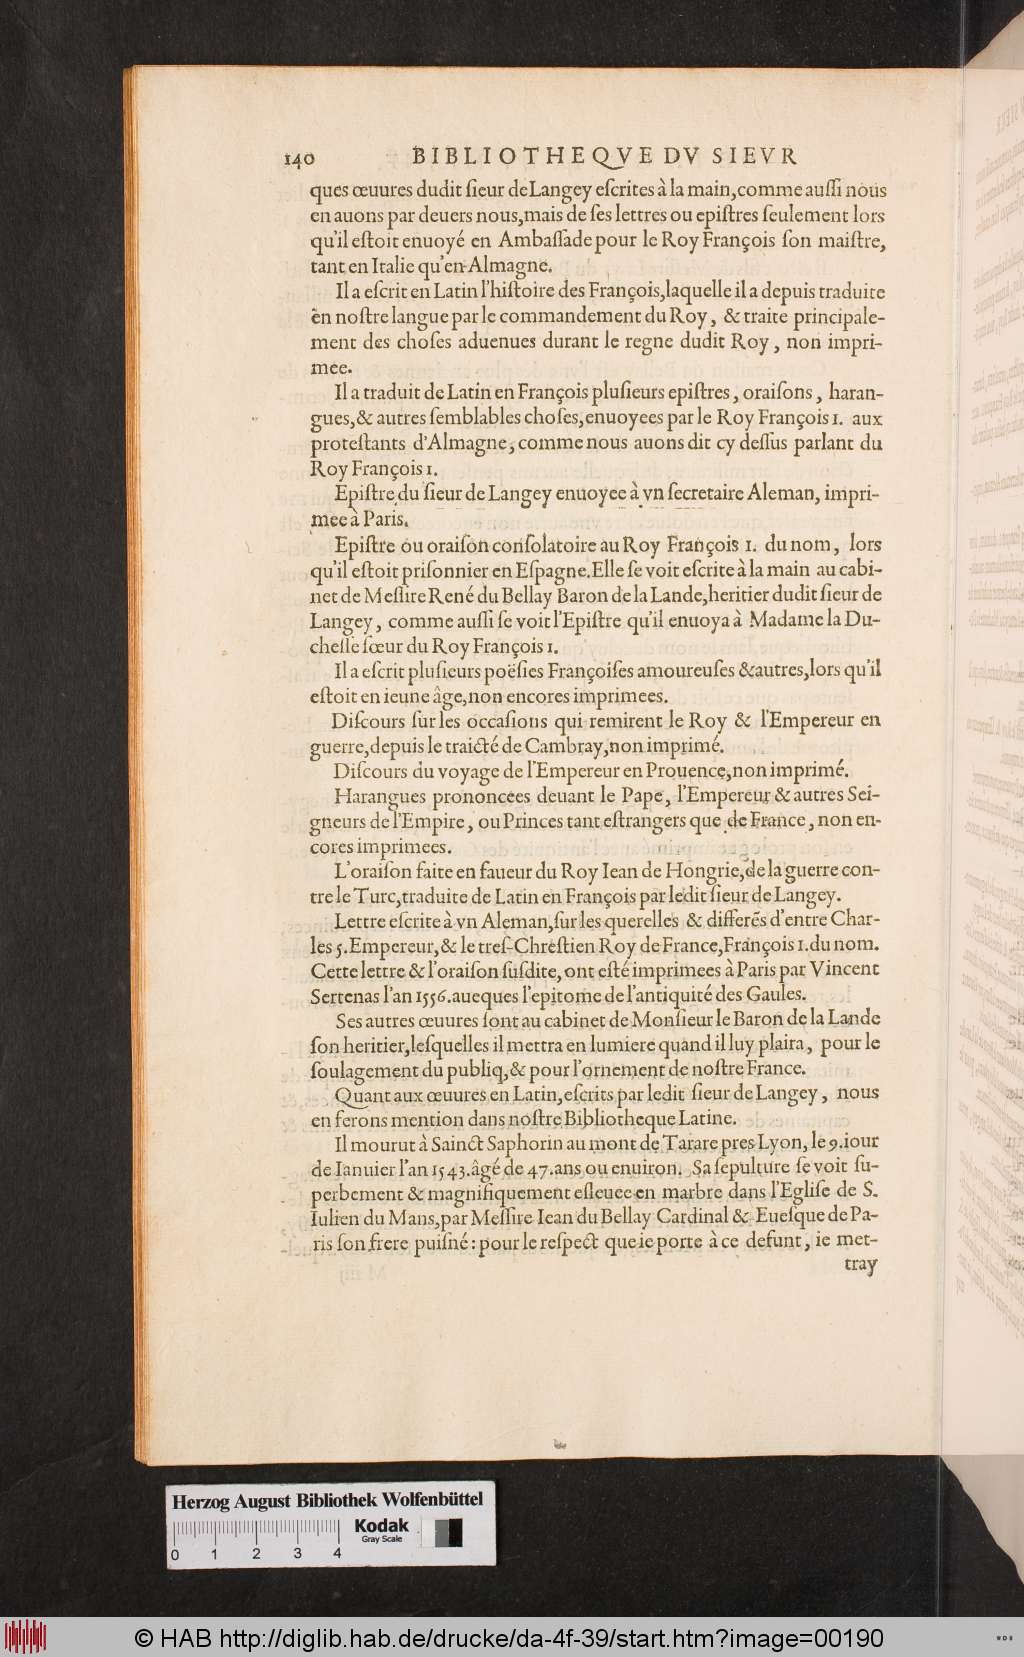 140 BIBLIOTHEQVE DV SIEVR
ques œuures dudit ſieur de Langey eſcrites à la main,comme auſſi nous
en auons par deuers nous,mais de ſes lettres ou epiſtres ſeulement lors
qu'il eſtoit enuoyé en Ambaſſade pour le Roy François ſon maiſtre,
tant en Italie qu'en Almagne.
Il a eſcrit en Latin l'hiſtoire des François,laquelle il a depuis traduite
en noſtre langue par le commandement du Roy, & traite principale-
ment des choſes aduenues durant le regne dudit Roy, non impri-
mee.
Il a traduit de Latin en François pluſieurs epiſtres, oraiſons, haran-
gues,& autres ſemblables choſes,enuoyees par le Roy François 1. aux
proteſtants d'Almagne, comme nous auons dit cy deſſus parlant du
Roy François 1.
Epiſtre du ſieur de Langey enuoyee à vn ſecretaire Aleman, impri-
mee à Paris.
Epiſtre ou oraiſon conſolatoire au Roy François 1. du nom, lors
qu'il eſtoit priſonnier en Eſpagne.Elle ſe voit eſcrite à la main au cabi-
net de Meſſire René du Bellay Baron de la Lande,heritier dudit ſieur de
Langey, comme auſſi ſe voit l'Epiſtre qu'il enuoya à Madame la Du-
cheſſe ſœur du Roy François 1.
Il a eſcrit pluſieurs poëſies Françoiſes amoureuſes &autres,lors qu'il
eſtoit en ieune âge,non encores imprimees.
Diſcours ſur les occaſions qui remirent le Roy & l'Empereur en
guerre,depuis le traicté de Cambray,non imprimé.
Diſcours du voyage de l'Empereur en Prouence,non imprimé.
Harangues prononcees deuant le Pape, l'Empereur & autres Sei-
gneurs de l'Empire, ou Princes tant eſtrangers que de France, non en-
cores imprimees.
L'oraiſon faite en faueur du Roy Iean de Hongrie,de la guerre con-
tre le Turc,traduite de Latin en François par ledit ſieur de Langey.
Lettre eſcrite à vn Aleman,ſur les querelles & differẽs d'entre Char-
les 5.Empereur,& le treſ-Chreſtien Roy de France,François 1.du nom.
Cette lettre & l'oraiſon ſuſdite, ont eſté imprimees à Paris par Vincent
Sertenas l'an 1556.aueques l'epitome de l'antiquité des Gaules.
Ses autres œuures ſont au cabinet de Monſieur le Baron de la Lande
ſon heritier,leſquelles il mettra en lumiere quand il luy plaira, pour le
ſoulagement du publiq,& pour l'ornement de noſtre France.
Quant aux œuures en Latin,eſcrits par ledit ſieur de Langey, nous
en ferons mention dans noſtre Bibliotheque Latine.
Il mourut à Sainct Saphorin au mont de Tarare pres Lyon, le 9.iour
de Ianuier l'an 1543.âgé de 47.ans ou enuiron. Sa ſepulture ſe voit ſu-
perbement & magnifiquement eſleuee en marbre dans l'Egliſe de S.
Iulien du Mans,par Meſſire Iean du Bellay Cardinal & Eueſque de Pa-
ris ſon frere puiſné : pour le reſpect que ie porte à ce defunt, ie met-
tray
Herzog August Bibliothek Wolfenbüttel
Kodak
Gray Scale
0 1 2 3 4
© HAB http://diglib.hab.de/drucke/da-4f-39/start.htm?image=00190